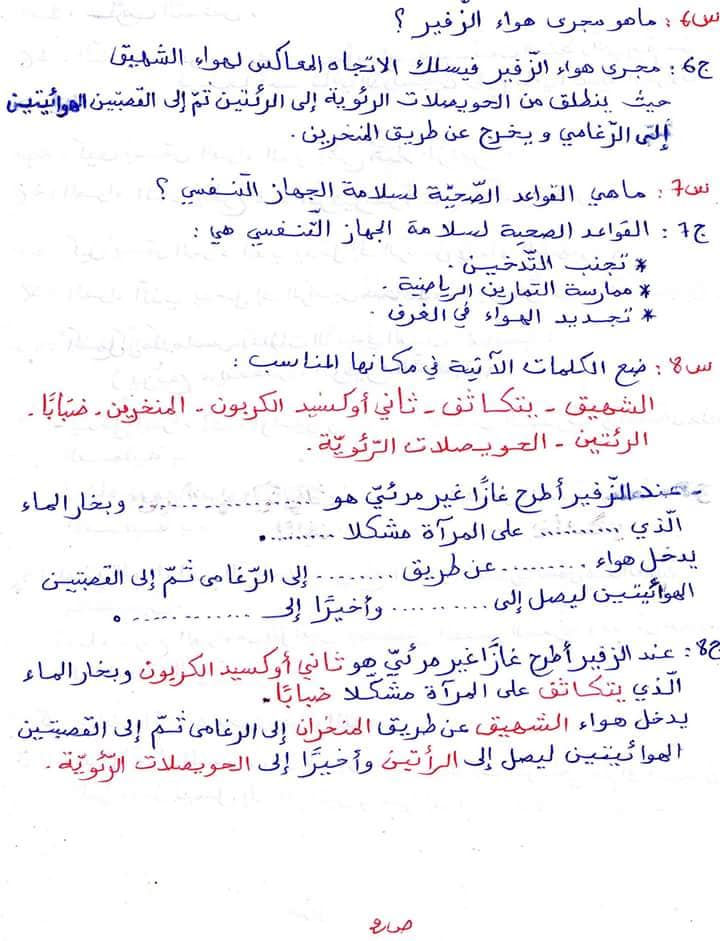 س6: ماهو مجرى هواء الزّفير ؟
ج6: مجرى هواء الزّفير فيسلك الاتجاه المعاكس لهواء الشهيق
حيث ينطلق من الحويصلات الرئوية إلى الرئتين ثمّ إلى القصبتين الهوائيتين
إلى الرّغامي و يخرج عن طريق المنخرين.
س7: ماهي القواعد الصّحيّة لسلامة الجهاز التّنفسي ؟
ج7: القواعد الصحية لسلامة الجهاز التّنفسي هي:
* تجنب التّدخين.
* ممارسة التمارين الرياضية.
* تجديد الهواء في الغرف.
س8: ضع الكلمات الآتية في مكانها المناسب:
الشهيق - يتكاثف - ثاني أوكسيد الكربون - المنخرين - ضبابًا.
الرئتين - الحويصلات الرّئويّة.
- عند الزّفير أطرح غازًا غير مرئيّ هو .................. وبخار الماء
الّذي .......... على المرآة مشكلا .........
يدخل هواء ......... عن طريق ........ إلى الرّغامى ثمّ إلى القصبتين
الهوائيتين ليصل إلى .......... وأخيرًا إلى .............
ج8: عند الزفير أطرح غازًا غير مرئيّ هو ثاني أوكسيد الكربون وبخار الماء
الّذي يتكاثف على المرآة مشكّلا ضبابًا.
يدخل هواء الشهيق عن طريق المنخران إلى الرغامى ثمّ إلى القصبتين
الهوائيتين ليصل إلى الرأتين وأخيرًا إلى الحويصلات الرّئويّة.
ص2